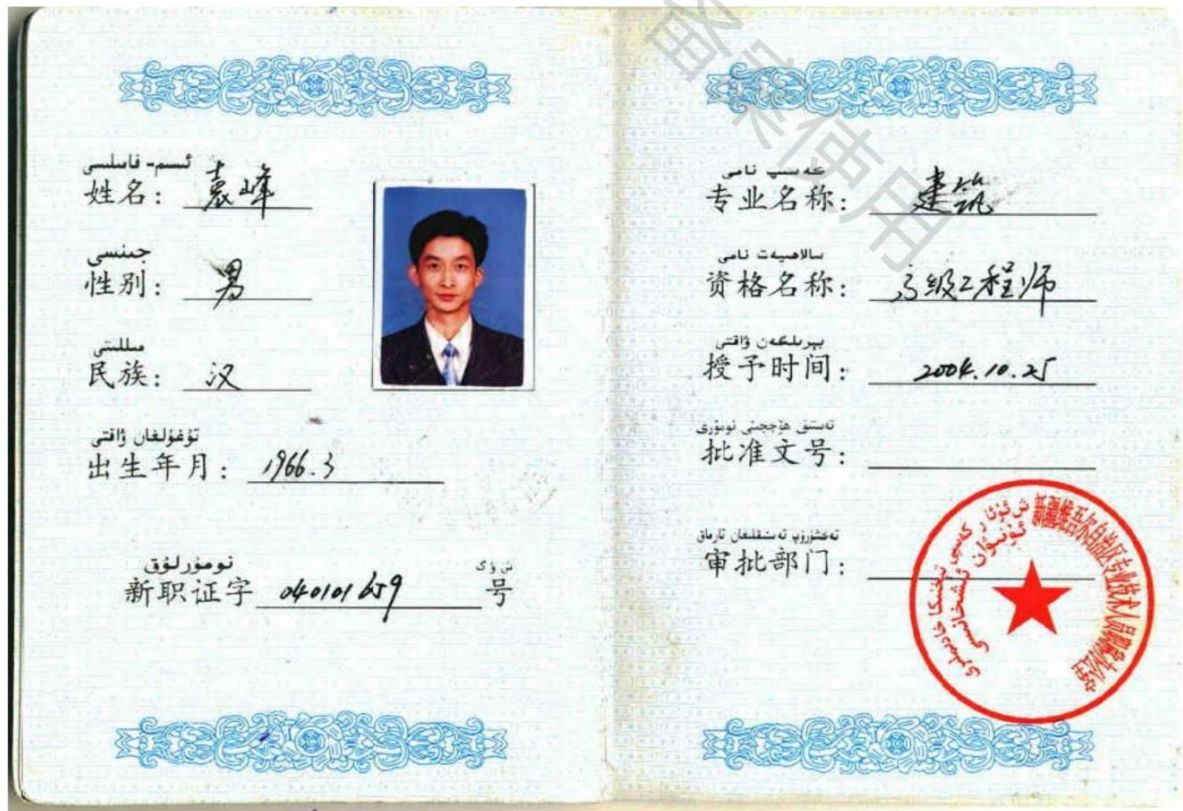 ئىسم- فامىلىسى
姓名: 袁峰
جىنسى
性别: 男
مىللىتى
民族: 汉
تۇغۇلغان ۋاقتى
出生年月: 1966.3
نومۇرلۇق ش ئۇ ك
新职证字 040101659 号
备案使用
كەسىپ نامى
专业名称: 建筑
سالاھىيەت نامى
资格名称: 高级工程师
بېرىلگەن ۋاقتى
授予时间: 2004.10.25
تەستىق ھۆججىتى نومۇرى
批准文号:
تەكشۈرۈپ تەستىقلىغان تارماق
审批部门:
新疆维吾尔自治区专业技术人员职称办公室